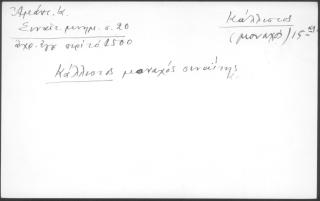 Ἀμάντ. Κ.
Σιναϊτ. μνημ. σ. 20
ἄχρ. ἔγγ. περὶ τὸ 1500
Κάλλιστος
(μοναχός) 15-
Κάλλιστος μοναχός σιναΐτης